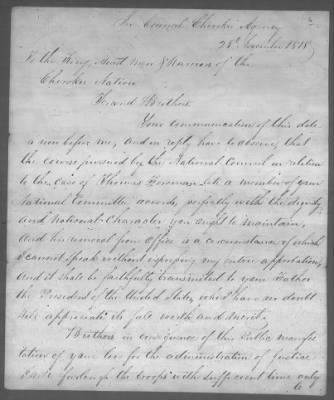 In Council Cherokee Agency
28th November 1818
To the King, Head Men & Warriors of the
Cherokee Nation
Friends & Brothers
Your communication of this date
is now before me, and in reply have to observe, that
the course pursued by the National Council in relation
to the case of Thomas Foreman late a member of your
National Committee accords perfectly with the dignity
and National Character you ought to maintain,
And his removal from office is a circumstance of which
I cannot speak without expressing my entire approbation,
And it shall be faithfully transmitted to your Father
the President of the United States, who I have no doubt
will appreciate its full worth and merit.
Brothers in consequence of this Public manifes
tation of your love for the administration of Justice
I will furlough the troops with sufficient time only
to